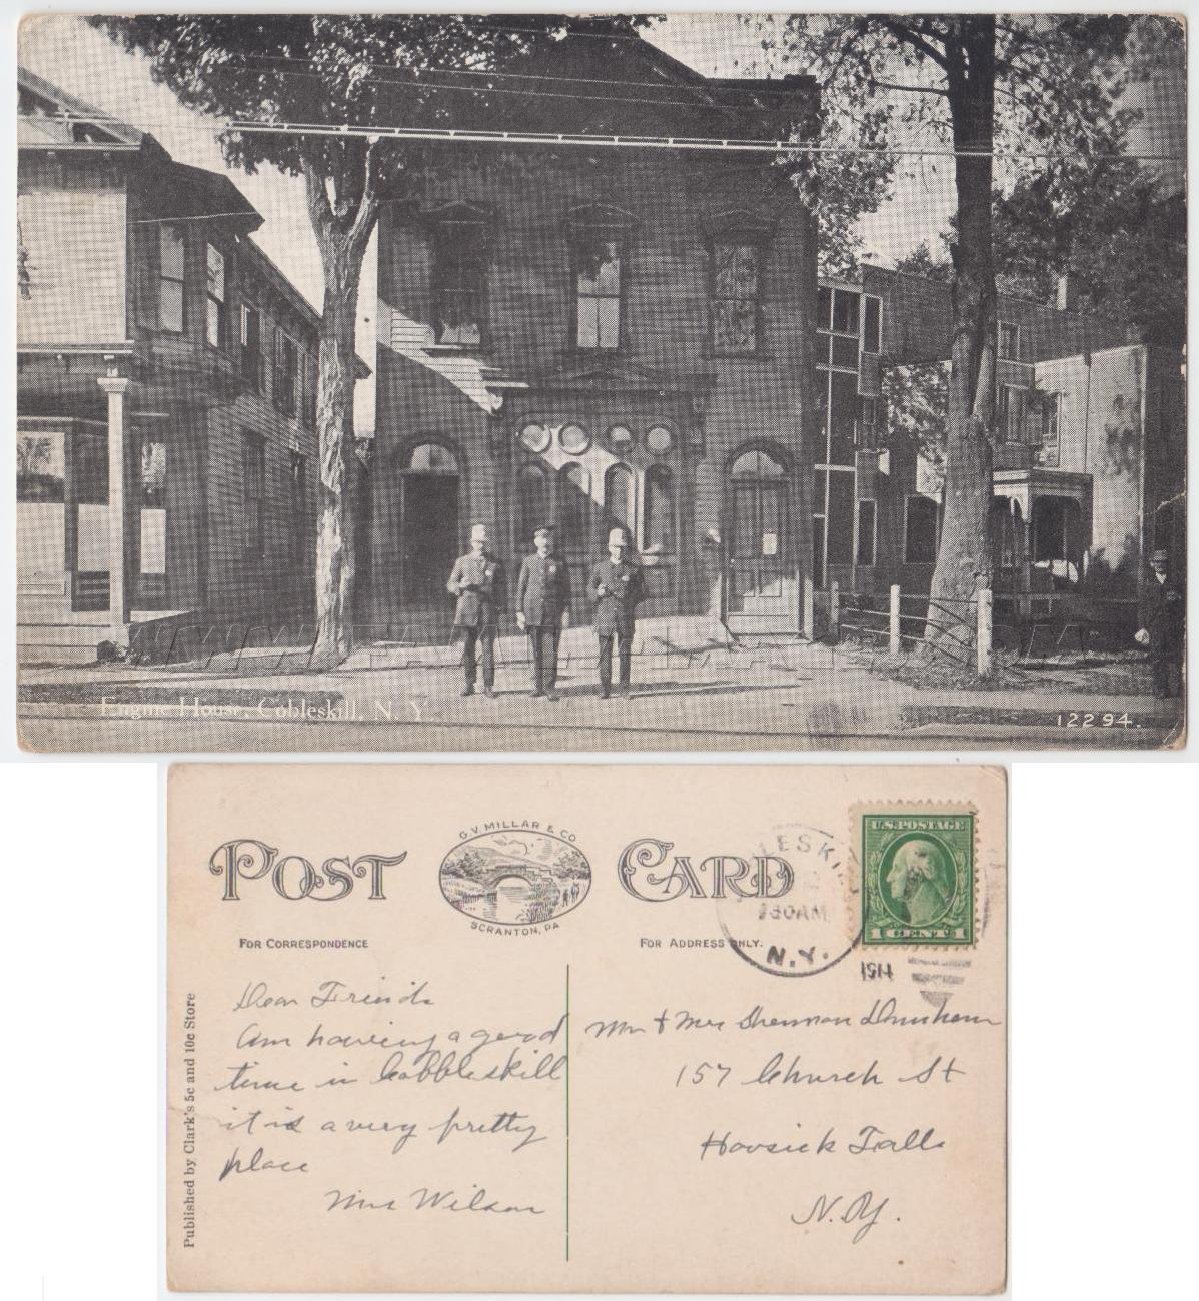 Engine House, Cobleskill, N. Y.
12294.
POST CARD
G. V. MILLAR & CO
SCRANTON, PA
FOR CORRESPONDENCE
FOR ADDRESS ONLY.
LESKI
930AM
N.Y.
1914
U.S. POSTAGE
1 CENT 1
Published by Clark's 5c and 10c Store
Dear Friends
Am having a good
time in Cobbleskill
it is a very pretty
place
Mrs Wilson
Mr & Mrs Sherman Dunham
157 Church St
Hoosick Falls
N.Y.